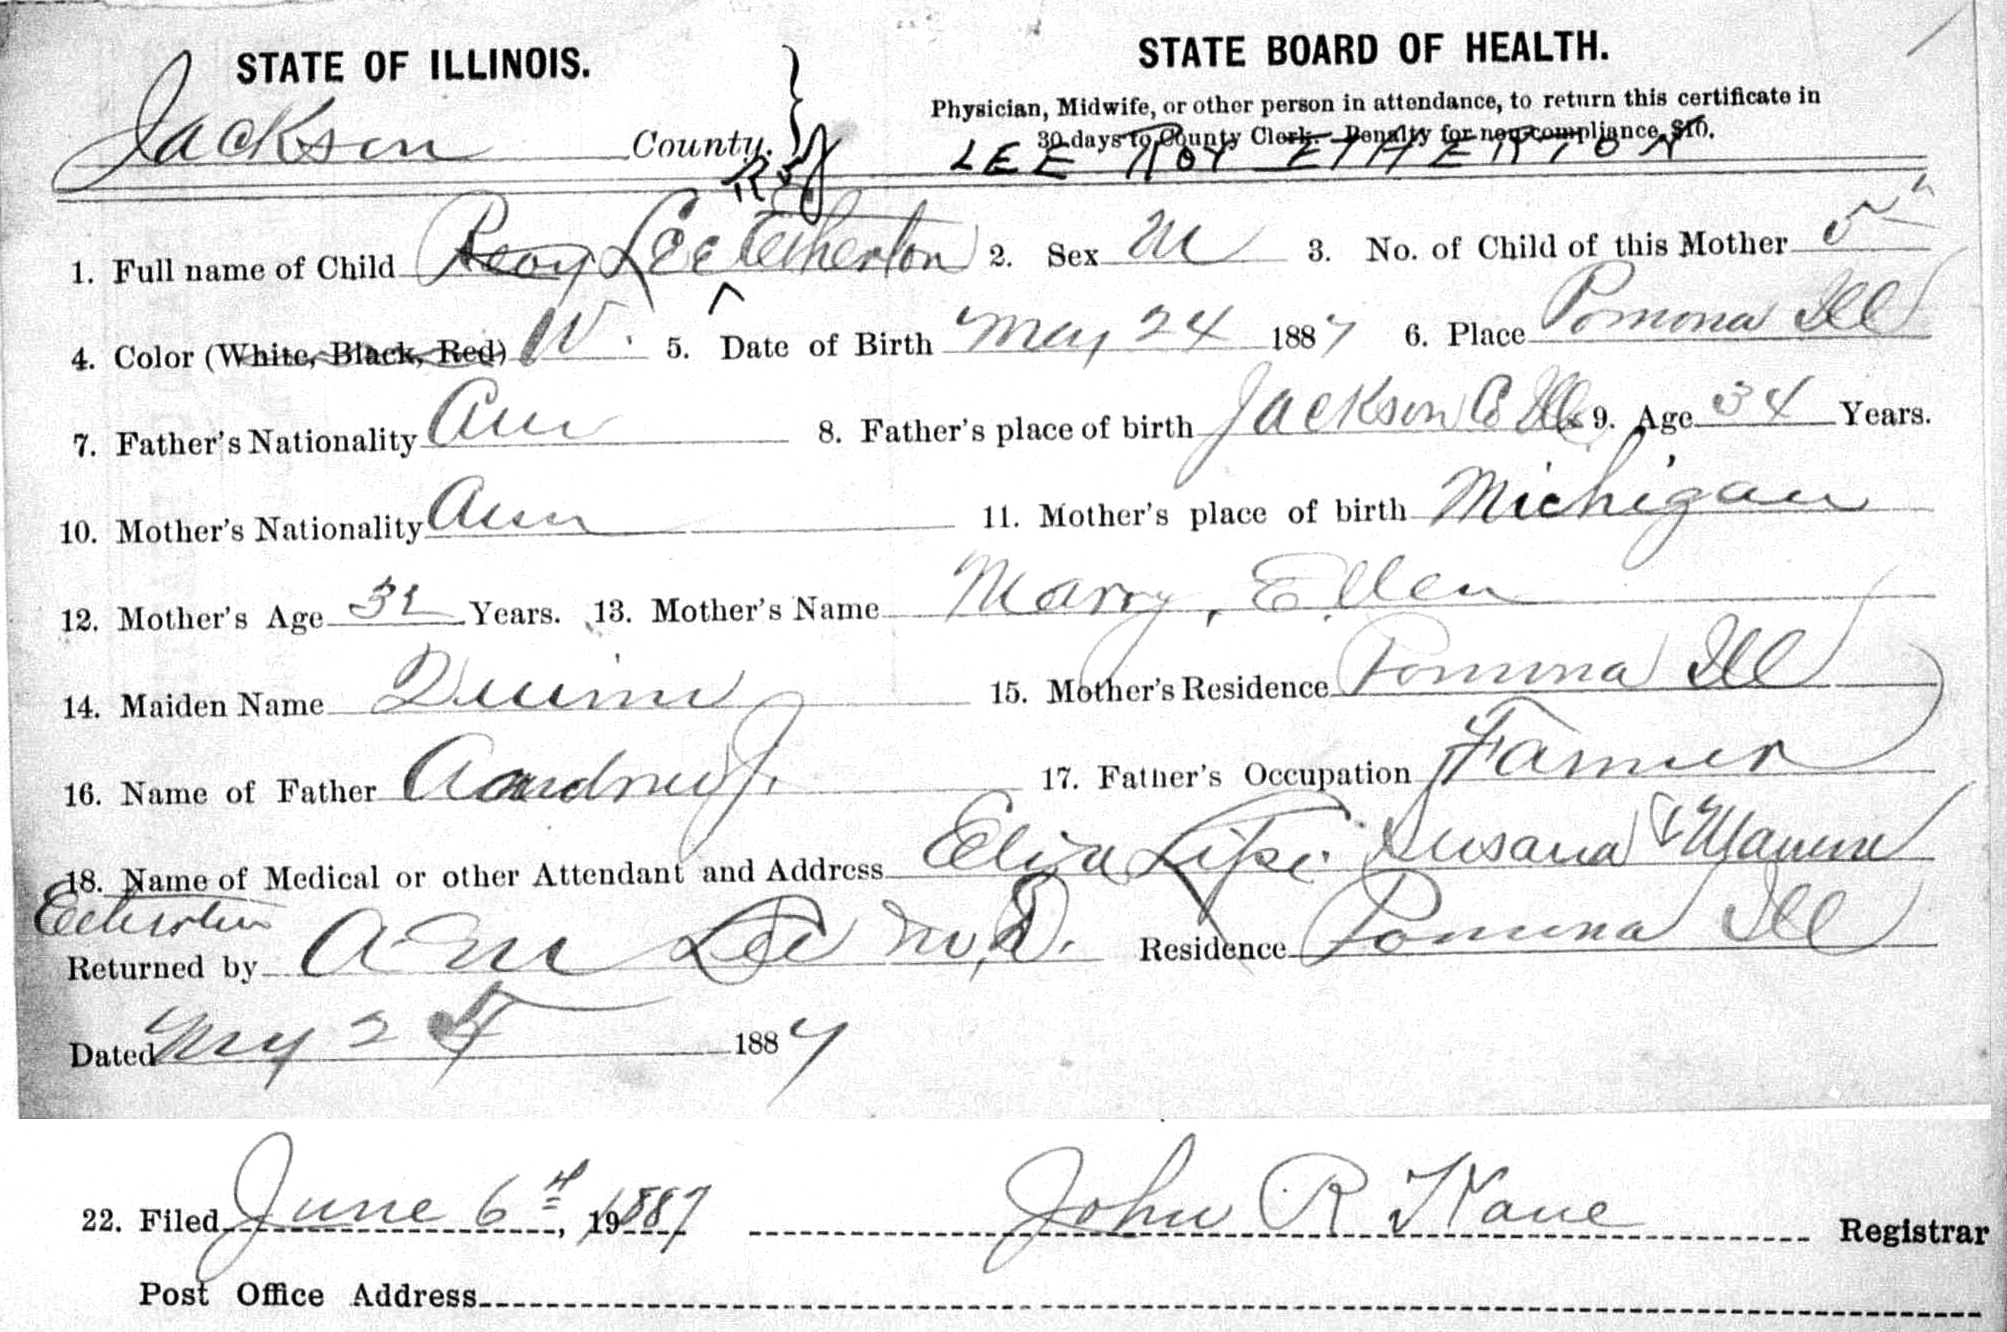 STATE OF ILLINOIS.
STATE BOARD OF HEALTH.
Jackson County.
Physician, Midwife, or other person in attendance, to return this certificate in
30 days to County Clerk. Penalty for non-compliance, $10.
Roy
LEE ROY ETHERTON
1. Full name of Child Leoy Lee Etherton 2. Sex M 3. No. of Child of this Mother 5th
4. Color (White, Black, Red) W. 5. Date of Birth May 24 1887 6. Place Pomona Ill
7. Father's Nationality Am 8. Father's place of birth Jackson Co Ills 9. Age 34 Years.
10. Mother's Nationality Am 11. Mother's place of birth Michigan
12. Mother's Age 31 Years. 13. Mother's Name Mary, Ellen
14. Maiden Name Quinn 15. Mother's Residence Pomona Ill
16. Name of Father Andrew J. 17. Father's Occupation Farmer
18. Name of Medical or other Attendant and Address Eliza Lipe. Susana &
Etherton
Returned by A M Lee M.D. Residence Pomona Ill
Dated May 25 1887
22. Filed June 6th, 1887 John R Kane Registrar
Post Office Address